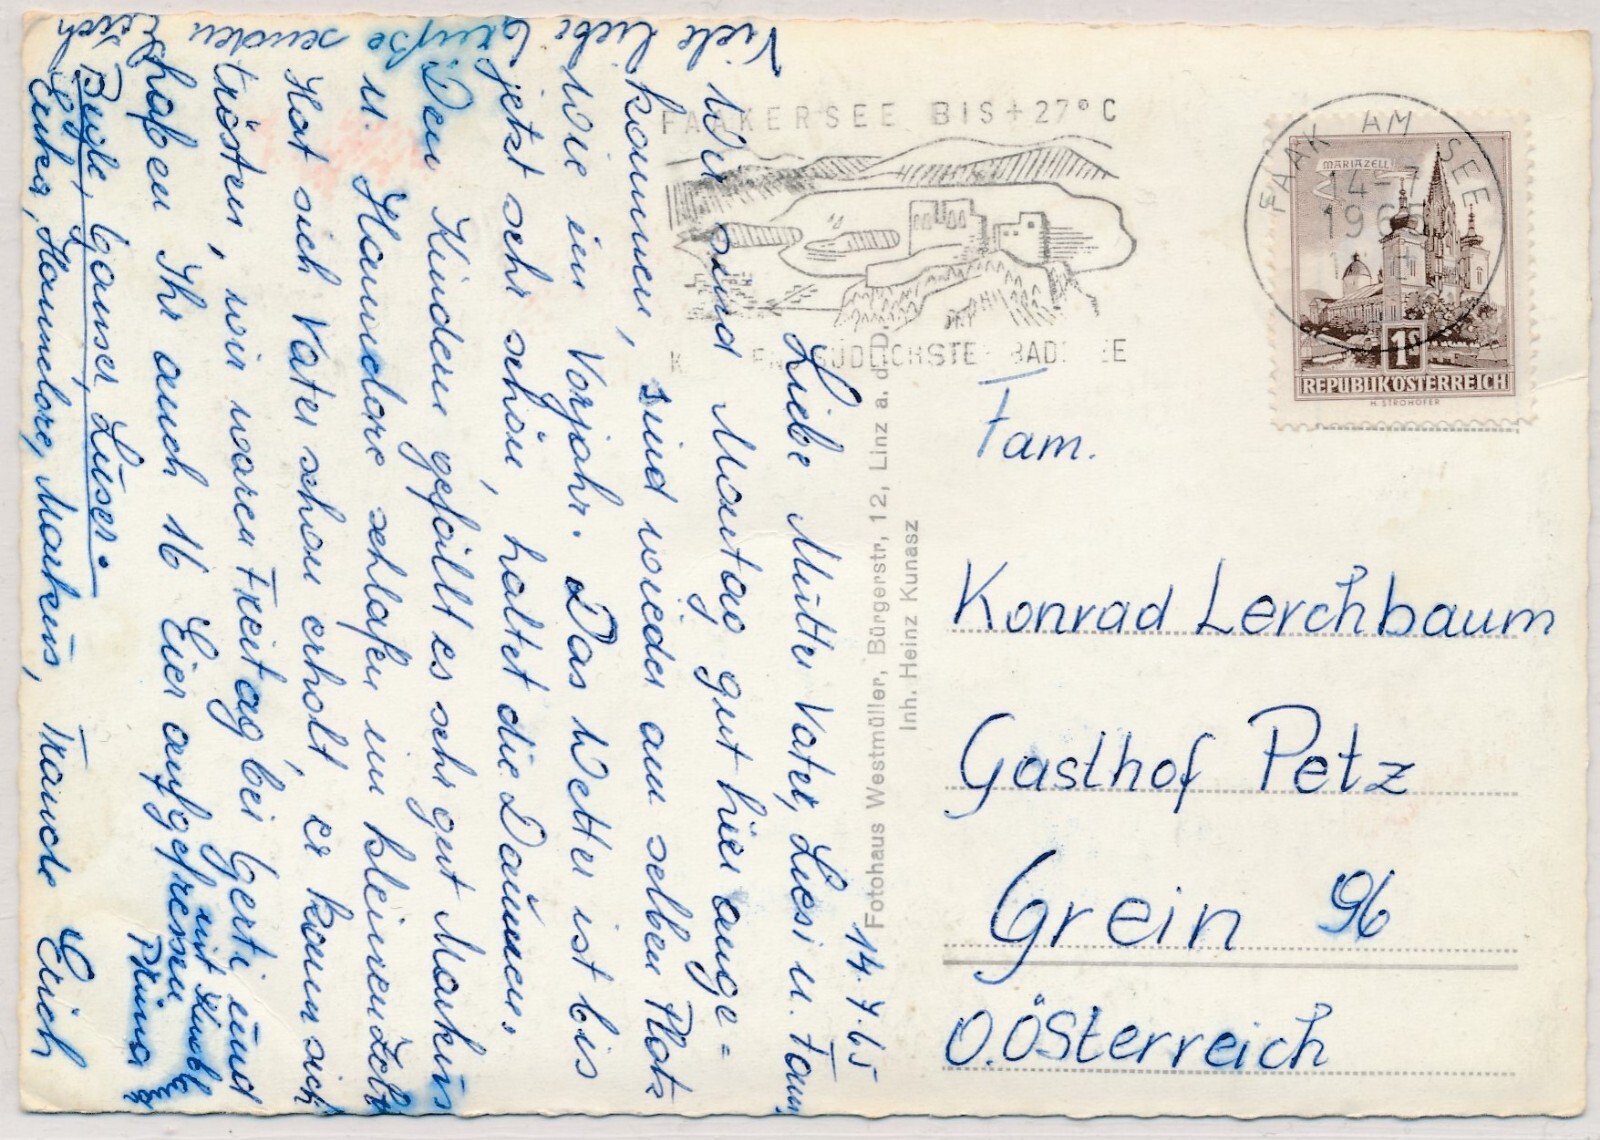 FAAKERSEE BIS +27° C
SÜDLICHSTE BADESEE
FAAK AM SEE
14-7
1965
MARIAZELL
1S
REPUBLIK ÖSTERREICH
H. STROHOFER
Fam.
Konrad Lerchbaum
Gasthof Petz
Grein 96
O.Österreich
Fotohaus Westmüller, Bürgerstr. 12, Linz a. d. D.
Inh. Heinz Kunasz
14.7.65
Liebe Mutter Vater, Liesi u. Fam.
Wir sind Montag gut hier ange=
kommen, sind wieder am selben Platz
wie im Vorjahr. Das Wetter ist bis
jetzt sehr schön, haltet die Daumen.
Den Kindern gefällt es sehr gut Markus
u. Hannelore schlafen im kleinen Zelt
Hat sich Vater schon erholt, er kann sich
trösten, wir waren Freitag bei Gerti und
haben Ihr auch 16 Eier aufgefressen
mit Kuchl
Prima
Bujle, Ganser Luser.
Viele liebe Grüße senden Euch
Erika, Hannelore, Markus, Traude Erich